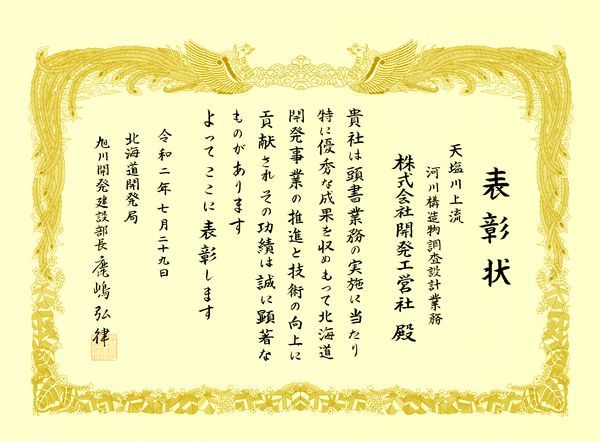 表彰状
天塩川上流
河川構造物調査設計業務
株式会社開発工営社 殿
貴社は頭書業務の実施に当たり
特に優秀な成果を収めもって北海道
開発事業の推進と技術の向上に
貢献されその功績は誠に顕著な
ものがあります
よってここに表彰します
令和二年七月二十九日
北海道開発局
旭川開発建設部長 鹿嶋弘律